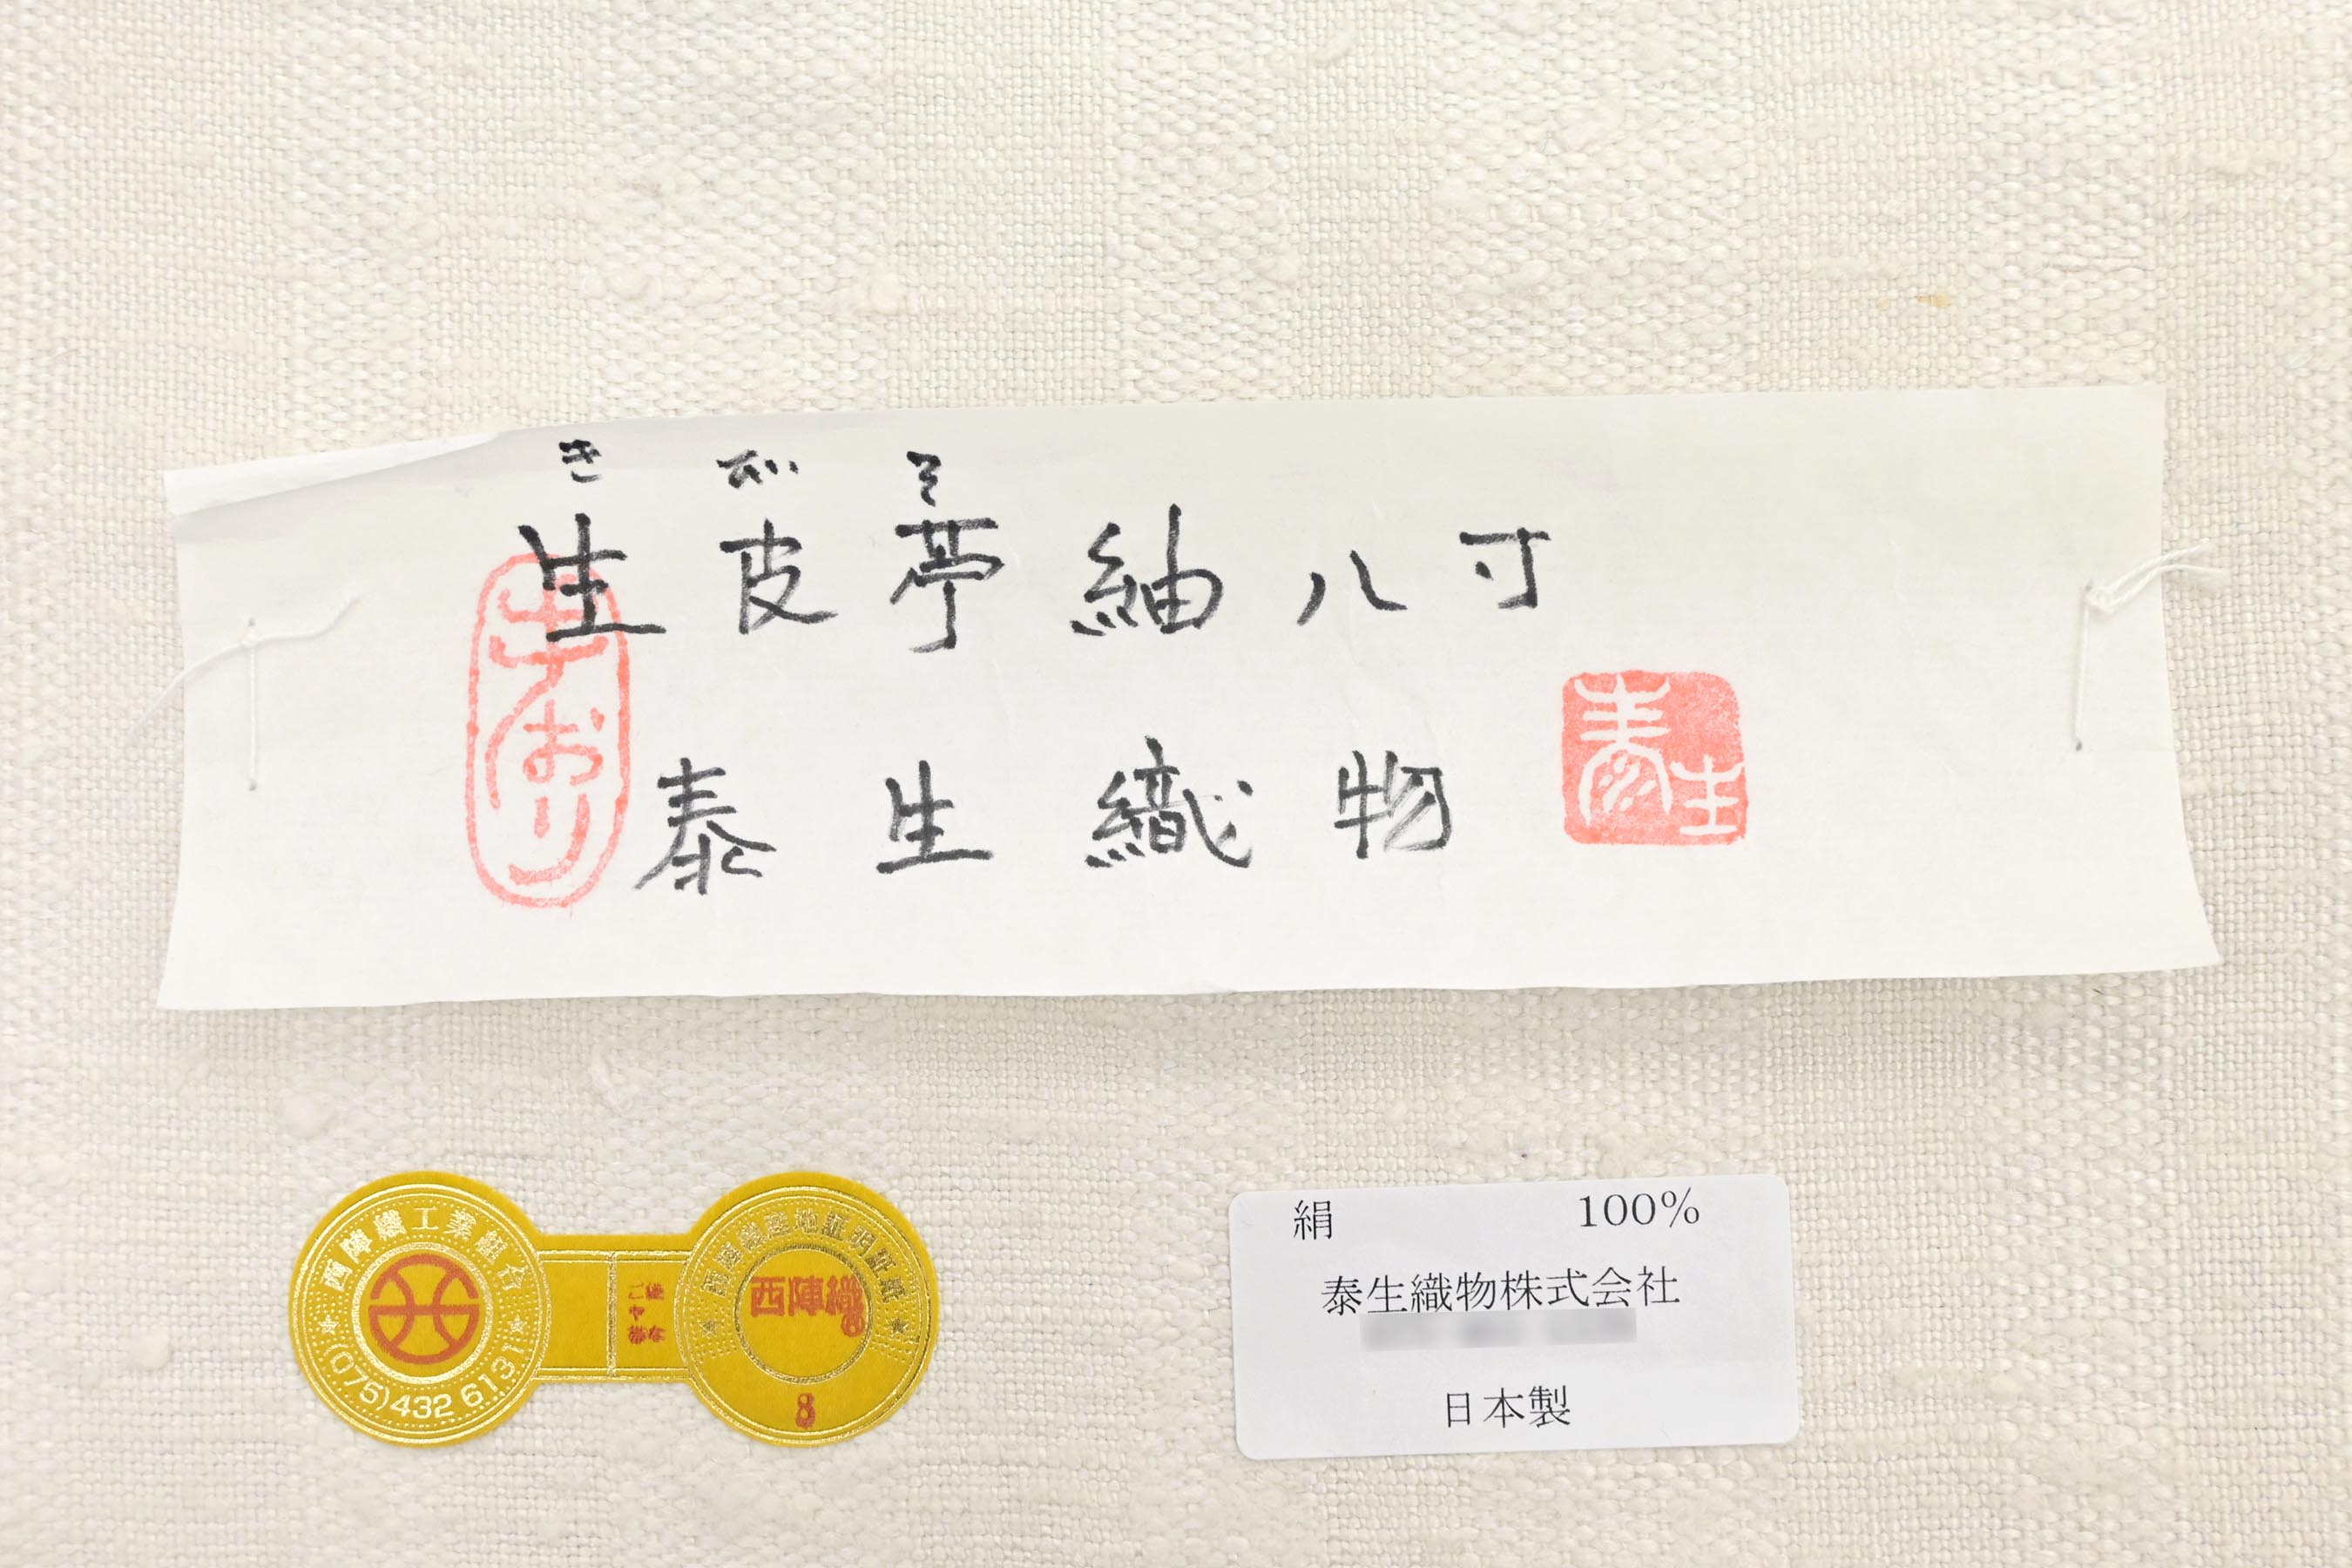 き び そ
生皮苧紬八寸
手おり
泰生織物
泰生
西陣織工業組合
(075)432 6131
西陣織産地証明証紙
西陣織
8
絹 100%
泰生織物株式会社
日本製